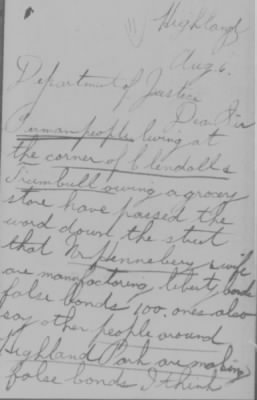 Highland
Aug. 6.
Department of Justice
Dear Sir
German people living at
the corner of Clendall &
Trumbull owing a grocery
store have passed the
word down the street
that Mr Henneberg & wife
are manufactoring liberty bonds
false bonds 100. ones also
say other people around
Highland Park are making
false bonds I think